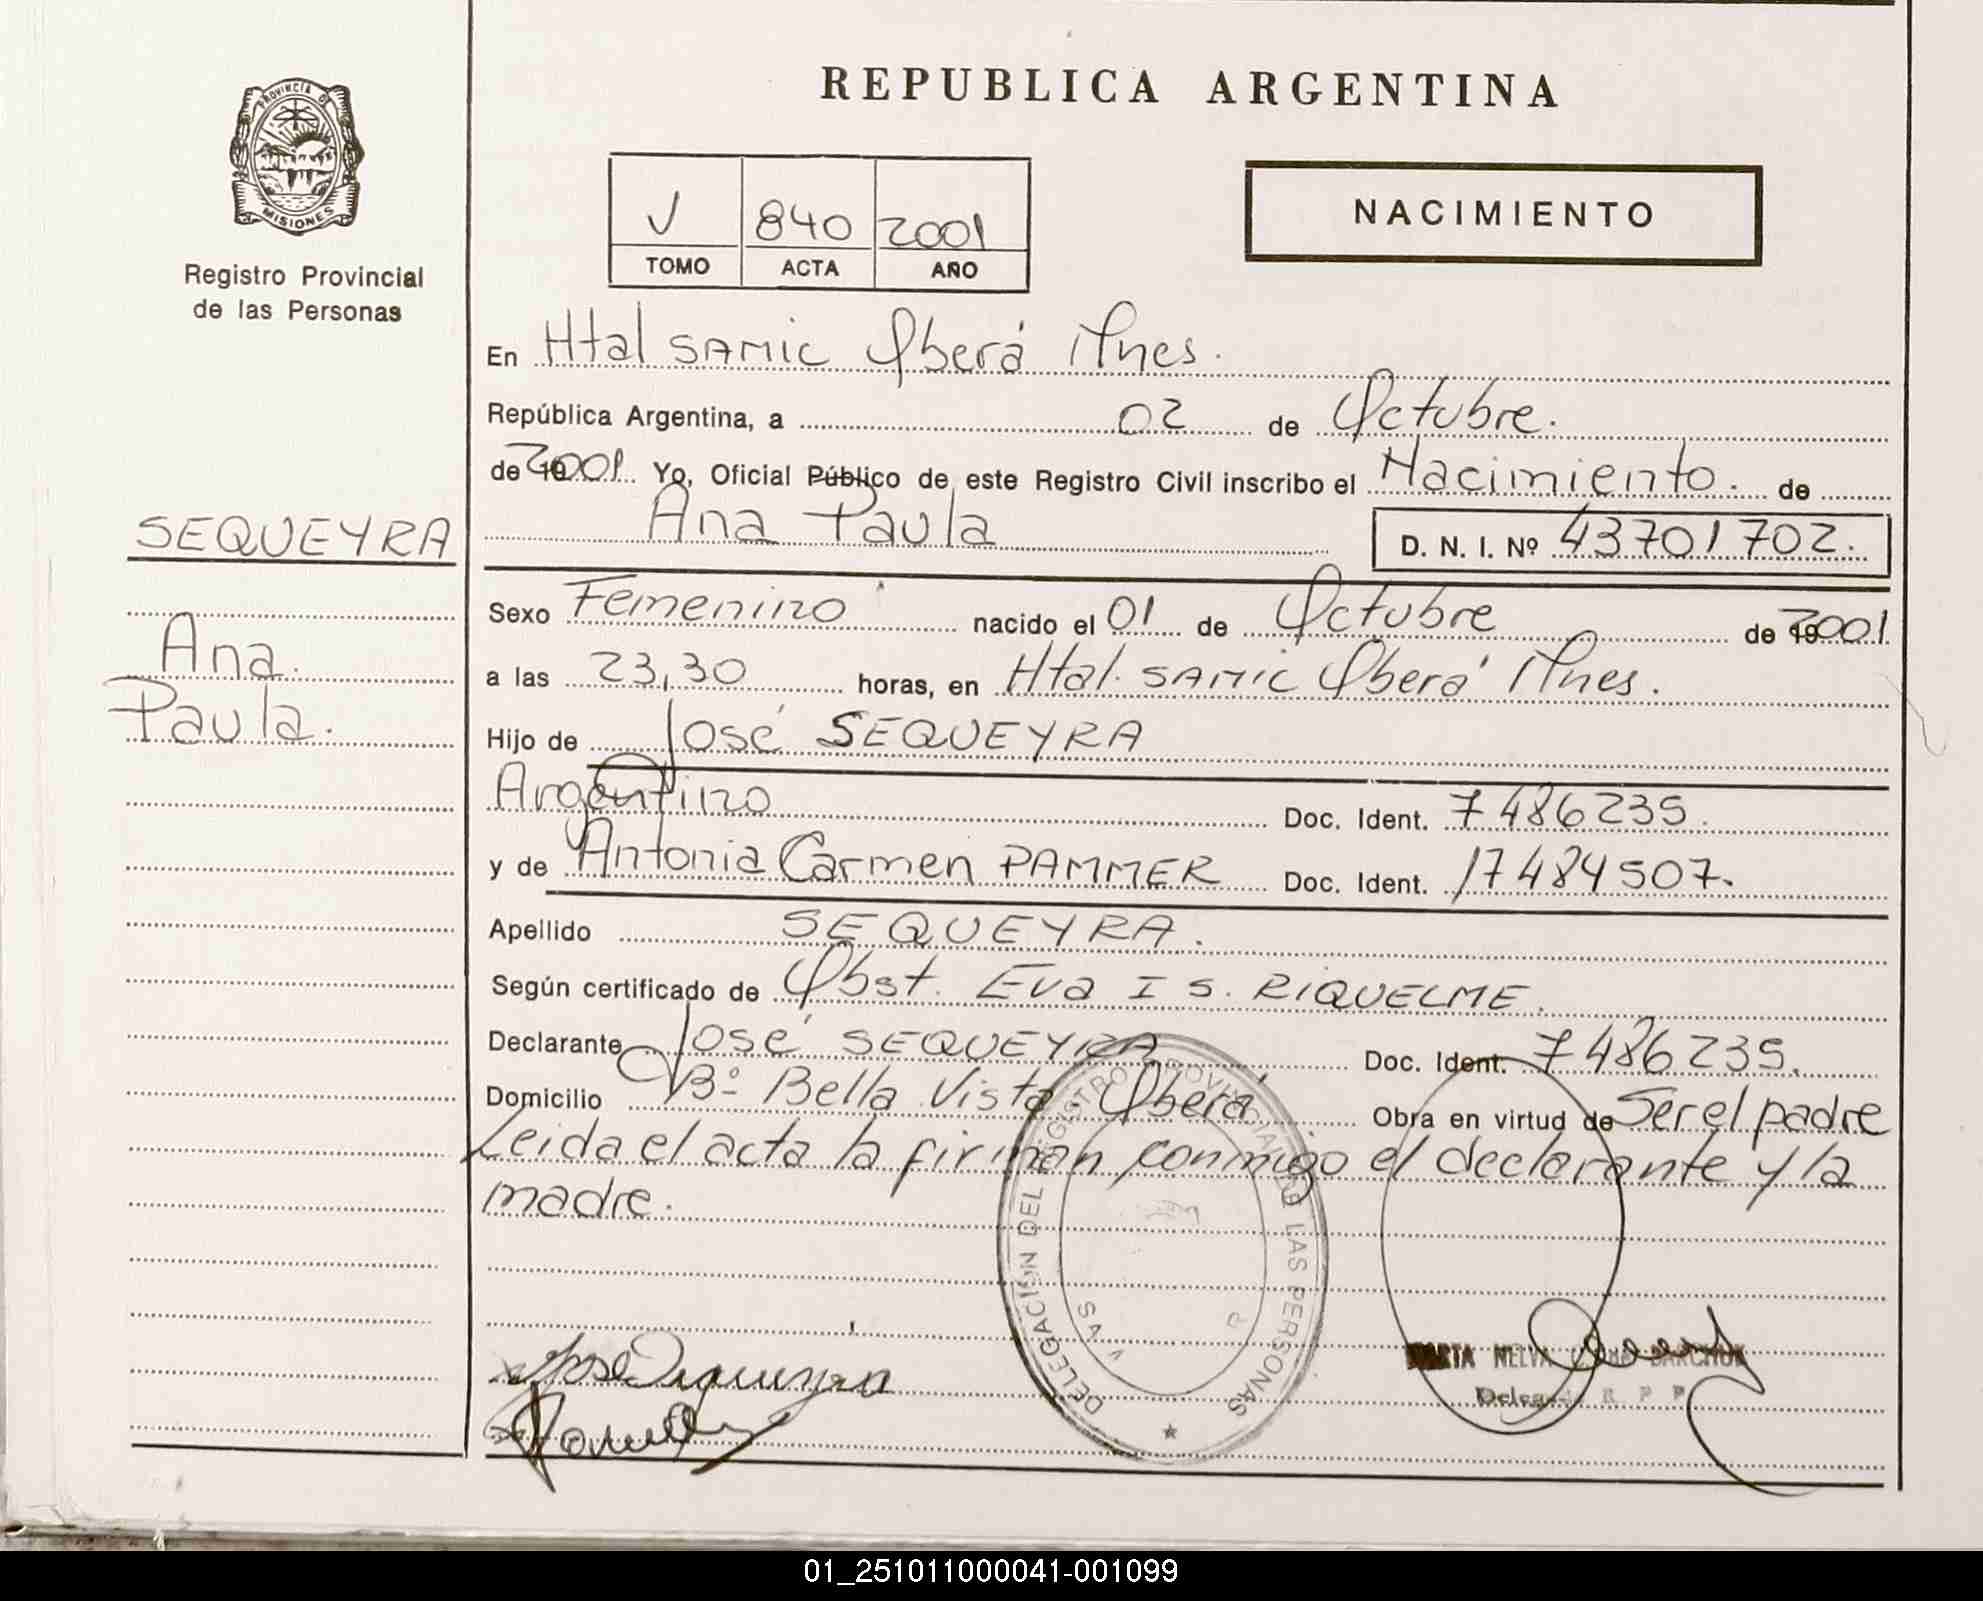 REPUBLICA ARGENTINA
PROVINCIA DE
MISIONES
Registro Provincial
de las Personas
V 840 2001
TOMO ACTA AÑO
NACIMIENTO
En Htal SAMIC Oberá Mnes.
República Argentina, a 02 de Octubre.
de 2001. Yo, Oficial Público de este Registro Civil inscribo el Nacimiento. de
Ana Paula D. N. I. Nº 43701702.
SEQUEYRA
Ana.
Paula.
Sexo Femenino nacido el 01 de Octubre de 2001
a las 23,30 horas, en Htal. SAMIC Oberá Mnes.
Hijo de José SEQUEYRA
Argentino Doc. Ident. 7486235.
y de Antonia Carmen PAMMER Doc. Ident. 17484507.
Apellido SEQUEYRA.
Según certificado de Obst. Eva I S. RIQUELME.
Declarante José SEQUEYRA Doc. Ident. 7486235.
Domicilio Bº Bella Vista Oberá Obra en virtud de Ser el padre
Leida el acta la firman conmigo el declarante y la
madre.
DELEGACION DEL REGISTRO PROVINCIAL DE LAS PERSONAS
José Sequeyra
MARTA NELVA
R P P
01_251011000041-001099